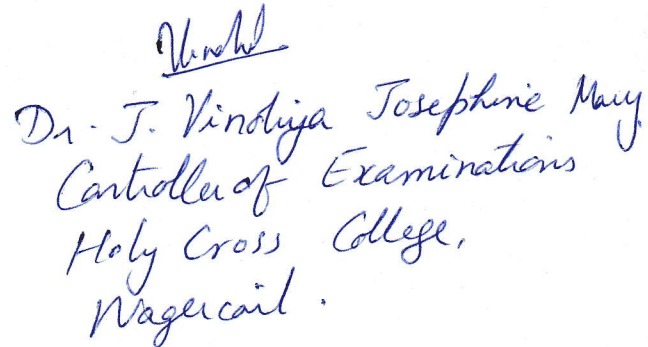 Dr. J. Vinoliya Josephine Mary
Controller of Examinations
Holy Cross College,
Nagercoil.